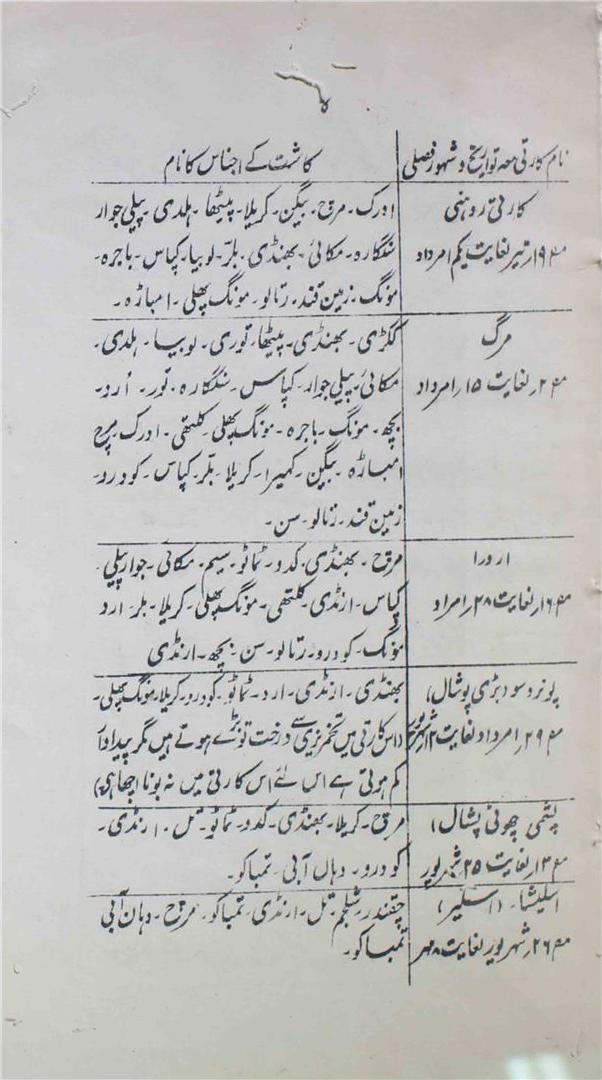 ۷
نام کارتی معہ تواریخ و شہور فصلی
کاشت کے اجناس کا نام
کارتی روہنی
م ۱۹؍تیر لغایت یکم امرداد
ادرک۔ مرچ۔ بیگن۔ کریلا۔ پیٹھا۔ ہلدی۔ پیلی جوار
شنگارہ۔ مکائی۔ بھنڈی۔ بلر۔ لوبیا۔ کپاس۔ باجرہ۔
مونگ۔ زمین قند۔ رتالو۔ مونگ پھلی۔ امباڑہ۔
مرگ
م ۲؍ لغایت ۱۵؍ امرداد
ککڑی۔ بھنڈی۔ پیٹھا۔ توری۔ لوبیا۔ ہلدی۔
مکائی۔ پیلی جوار۔ کپاس۔ شنگارہ۔ تور۔ اُرد۔
بچھ۔ مونگ۔ باجرہ۔ مونگ پھلی۔ کلتھی۔ ادرک۔ مرچ
امباڑہ۔ بیگن۔ کھیرا۔ کریلا۔ بلر۔ کپاس۔ کودرو۔
زمین قند۔ رتالو۔ سن۔
اردرا
م ۱۶؍ لغایت ۲۸؍ امرداد
مرچ۔ بھنڈی۔ کدو۔ ٹماٹو۔ سیم۔ مکائی۔ جوار پیلی
کپاس۔ ارنڈی۔ کلتھی۔ مونگ پھلی۔ کریلا۔ بلر۔ ارد
مونگ۔ کودرو۔ رتالو۔ سن۔ بچھ۔ ارنڈی
پونروسو (بڑی پوشال)
م ۲۹؍ امرداد لغایت ۱۲؍شہریور
بھنڈی۔ ارنڈی۔ ارد۔ ٹماٹو۔ کودرو۔ کریلا۔ مونگ پھلی۔
(اس کارتی میں تخمریزی سے درخت تو بڑے ہوتے ہیں مگر پیداوار
کم ہوتی ہے اس لئے اس کارتی میں نہ بونا اچھا ہے)
پشمی (چھوٹی پشال)
م ۱۳؍ لغایت ۲۵؍ شہریور
مرچ۔ کریلا۔ بھنڈی۔ کدو۔ ٹماٹو۔ تل۔ ارنڈی۔
کودرو۔ دہان آبی۔ تمباکو۔
اسلیشا۔ (اسلیر)
م ۲۶؍ شہریور لغایت ۸ مہر
چقندر۔ شلجم۔ تل۔ ارنڈی۔ تمباکو۔ مرچ۔ دہان آبی
تمباکو۔